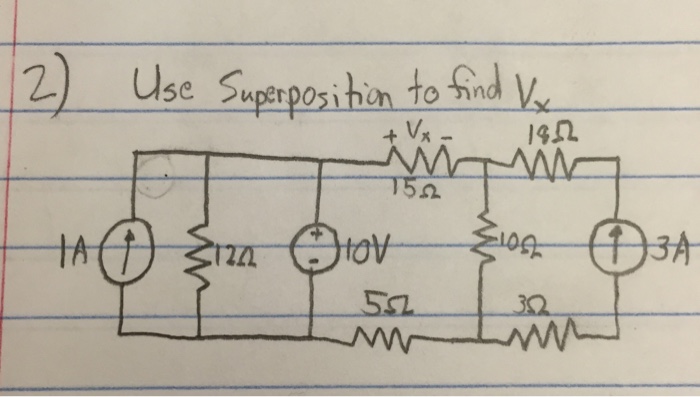 2) Use Superposition to find Vx
+ Vx -
18Ω
15Ω
1A
12Ω
+
-
10V
10Ω
3A
5Ω
3Ω